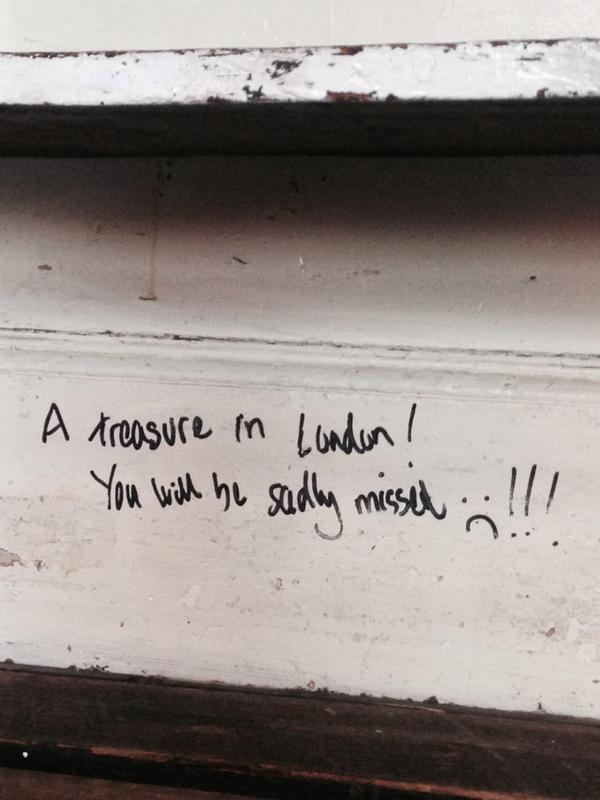 A treasure in London!
You will be sadly missed :( !!!